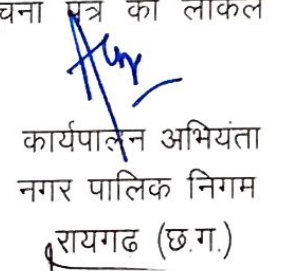 चना पत्र को लोकल
कार्यपालन अभियंता
नगर पालिक निगम
रायगढ (छ.ग.)